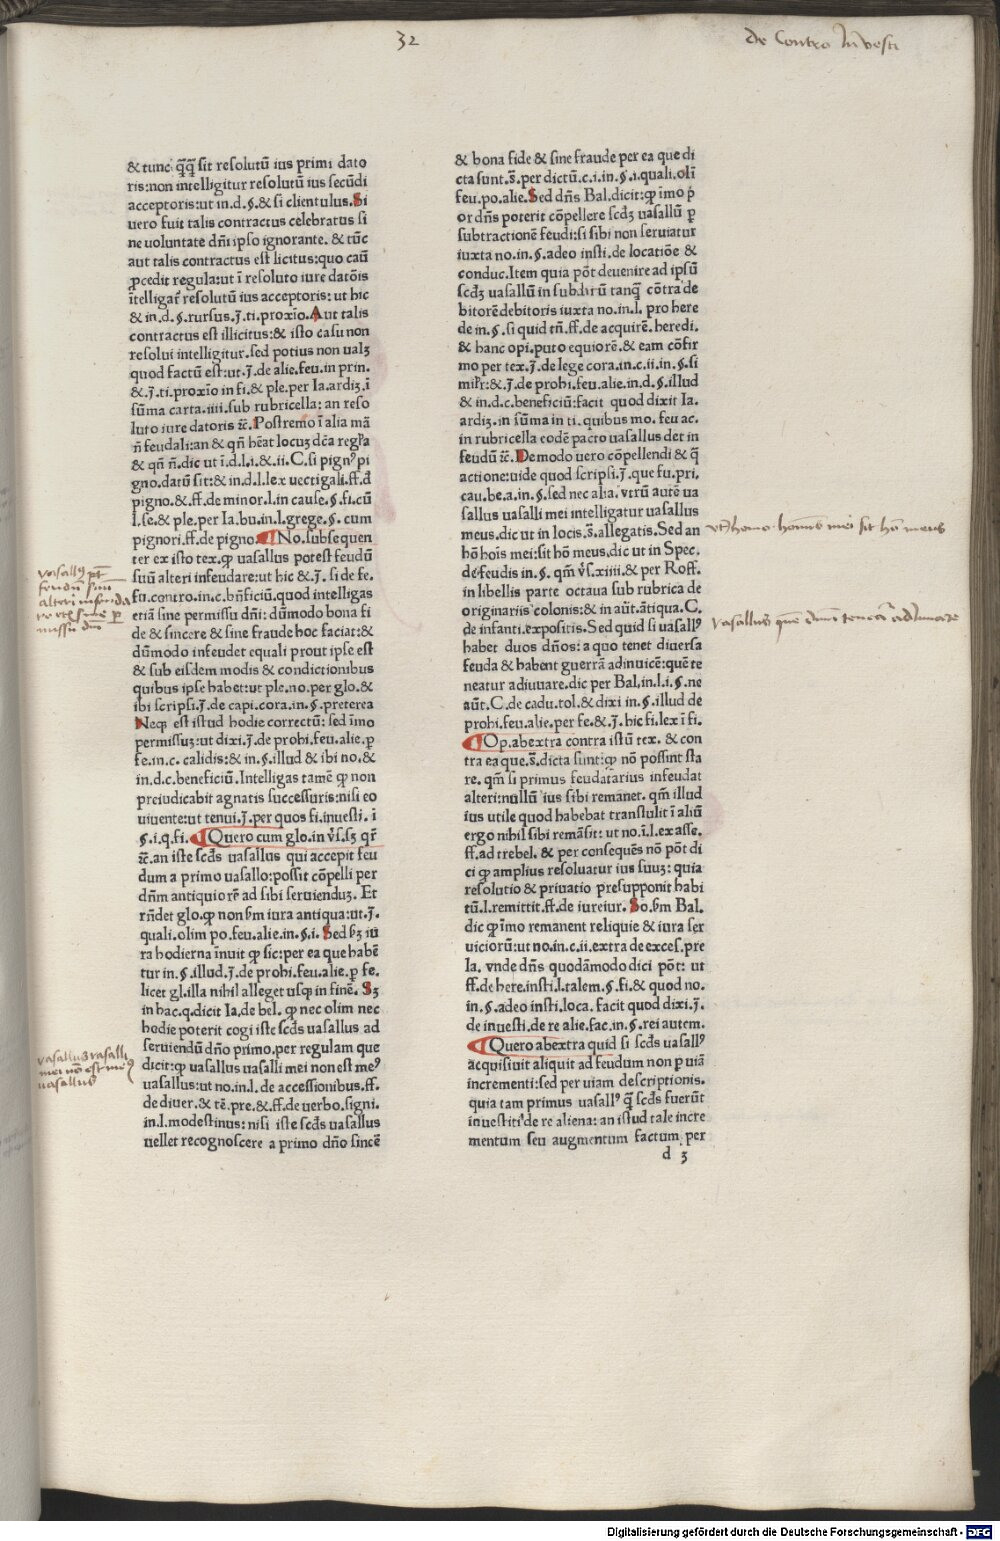 32
de Contro Inuesti
& tunc q̃q̃ sit resolutũ ius primi dato
ris:non intelligitur resolutũ ius secũdi
acceptoris:ut in.d.§.& si clientulus.Si
uero fuit talis contractus celebratus si
ne uoluntate dñi ipso ignorante.& tũc
aut talis contractus est licitus:quo caũ
ꝓcedit regula:ut ĩ resoluto iure datõis
ĩtelligat᷑ resolutũ ius acceptoris: ut hic
& in.d.§.rursus.j̃.ti.proxĩo.Aut talis
contractus est illicitus:& isto casu non
resolui intelligitur.sed potius non ualꝫ
quod factũ est:ut.j̃.de alie.feu.in prin.
&.j̃.ti.proxĩo in fi.& ple.per Ia.ardiꝫ.ĩ
sũma carta.iiii.sub rubricella: an reso
luto iure datoris ẽc.Postremo ĩ alia mã
ñ feudali:an & qñ hẽat locuꝫ dc̃a regl̃a
& qñ ñ.dic ut ĩ.d.l.i.& ii.C.si pignꝰ pi
gno.datũ sit:& in.d.l.lex uectigali.ff.đ
pigno.& ff.de minor.l.in cause.§.fi.cũ
l.se.& ple.per Ia.bu.in.l.grege.§.cum
pignori.ff.de pigno.¶No.subsequen
ter ex isto tex.ꝙ uasallus potest feudũ
suũ alteri infeudare:ut hic &.j̃.si de fe.
fu.contro.in.c.bñficiũ.quod intelligas
etiã sine permissu dñi: dũmodo bona fi
de & sincere & sine fraude hoc faciat:&
dũmodo infeudet equali prout ipse est
& sub eisdem modis & condictionibus
quibus ipse habet:ut ple.no.per glo.&
ibi scripsi.j̃.de capi.cora.in.§.preterea
Neqꝫ est istud hodie correctũ: sed ĩmo
permissuꝫ:ut dixi.j̃.de prohi.feu.alie.ꝑ
fe.in.c. calidis:& in.§.illud & ibi no.&
in.d.c.beneficiũ.Intelligas tamẽ ꝙ non
preiudicabit agnatis successuris:nisi eo
uiuente:ut tenui.j̃.per quos fi.inuesti. ĩ
§.i.q.fi.¶Quero cum glo.in v̾s.sꝫ qr̃
ẽc.an iste scđs uasallus qui accepit feu
dum a primo uasallo:possit cõpelli per
dñm antiquiorẽ ad sibi seruienduꝫ. Et
rñdet glo.ꝙ non ẜm iura antiqua:ut.j̃.
quali.olim po.feu.alie.in.§.i. Sed ẜꝫ iu
ra hodierna ĩnuit ꝙ sic:per ea que habẽ
tur in.§.illud.j̃.de prohi.feu.alie.ꝑ fe.
licet gl.illa nihil alleget usqꝫ in finẽ. Sꝫ
in hac.q.dicit Ia.de bel. ꝙ nec olim nec
hodie poterit cogi iste scđs uasallus ad
seruiendũ dño primo.per regulam que
dicit:ꝙ uasallus uasalli mei non est meꝰ
uasallus:ut no.in.l.de accessionibus.ff.
de diuer.& tẽ.pre.& ff.de uerbo.signi.
in.l.modestinus: nisi iste scđs uasallus
uellet recognoscere a primo dño sincẽ
& bona fide & sine fraude per ea que di
cta sunt.s̃.per dictũ.c.i.in.§.i.quali.olĩ
feu.po.alie.Sed dñs Bal.dicit:ꝙ ĩmo p̃
or dñs poterit cõpellere scđꝫ uasallũ ꝑ
subtractionẽ feudi:si sibi non seruiatur
iuxta no.in.§.adeo insti.de locatiõe &
conduc.Item quia põt deuenire ad ipsũ
scđꝫ uasallũ in subdirũ tanqꝫ cõtra de
bitorẽ debitoris iuxta no.in.l. pro here
de in.§.si quid tñ.ff.de acquirẽ.heredi.
& hanc opi.puto equiorẽ.& eam cõfir
mo per tex.j̃.de lege cora.in.c.ii.in.§.si
mil̃r:&.j̃.de prohi.feu.alie.in.d.§.illud
& in.d.c.beneficiũ:facit quod dixit Ia.
ardiꝫ.in sũma in ti.quibus mo. feu ac.
in rubricella eodẽ pacto uasallus det in
feudũ ẽc.Demodo uero cõpellendi & q̃
actione:uide quod scripsi.j̃.que fu.pri.
cau.be.a.in.§.sed nec alia. vtrũ autẽ ua
sallus uasalli mei intelligatur uasallus
meus.dic ut in locis.s̃.allegatis.Sed an
hõ hoĩs mei:sit hõ meus.dic ut in Spec.
de feudis in.§. qm̃ v̾s.xiiii.& per Roff.
in libellis parte octaua sub rubrica de
originariis colonis:& in aũt.ãtiqua.C.
de infanti.expositis.Sed quid si uasallꝰ
habet duos dños: a quo tenet diuersa
feuda & habent guerrã adinuicẽ:quẽ te
neatur adiuuare.dic per Bal.in.l.i.§.ne
aũt.C.de cadu.tol.& dixi in.§.illud de
prohi.feu.alie.per fe.&.j̃.hic fi.lex ĩ fi.
¶Op.abextra contra istũ tex. & con
tra ea que.s̃.dicta sunt:ꝙ nõ possint sta
re. qm̃ si primus feudatarius infeudat
alteri:nullũ ius sibi remanet. qm̃ illud
ius utile quod habebat transtulit ĩ aliũ
ergo nihil sibi remãsit: ut no.ĩ.l.ex asse.
ff.ad trebel. & per consequẽs nõ põt di
ci ꝙ amplius resoluatur ius suuꝫ: quia
resolutio & priuatio presupponit habi
tũ.l.remittit.ff.de iureiur. So.ẜm Bal.
dic ꝙ ĩmo remanent reliquie & iura ser
uiciorũ:ut no.in.c.ii.extra de exces.pre
la. vnde dñs quodãmodo dici põt: ut
ff.de here.insti.l.talem.§.fi.& quod no.
in.§.adeo insti.loca. facit quod dixi.j̃.
de inuesti.de re alie.fac.in.§.rei autem.
¶Quero abextra quid si scđs uasallꝰ
acquisiuit aliquit ad feudum non ꝑ uiã
incrementi:sed per uiam descriptionis.
quia tam primus uasallꝰ q̃ scđs fuerũt
inuestiti de re aliena: an istud tale incre
mentum seu augmentum factum per
d 3
vasallꝰ pt̃
feudũ suũ
alteri infeuda
re etiã sine per
missu dñi
vasallus vasalli
mei nõ est meꝰ
uasallus
vtꝫ homo hominis mei sit hõ meus
vasallus quem dñm teneatur adiuuare
Digitalisierung gefördert durch die Deutsche Forschungsgemeinschaft - DFG